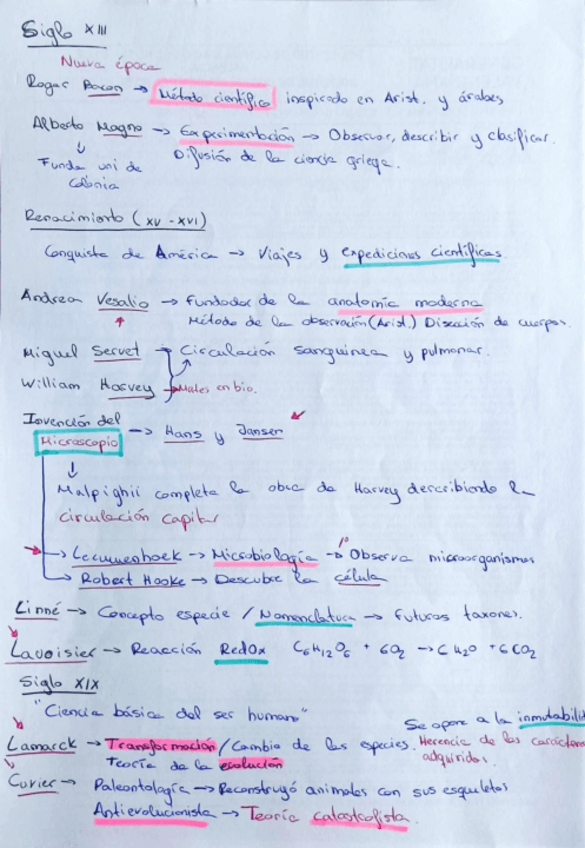 Siglo XIII
Nueva época
Roger Bacon → Método científico inspirado en Arist. y árabes
Alberto Magno → Experimentación → Observar, describir y clasificar.
Funda uni de Difusión de la ciencia griega.
Colonia
Renacimiento (XV - XVI)
Conquista de América → Viajes y expediciones científicas.
Andrea Vesalio → Fundador de la anatomía moderna
Método de la observación (Arist.) Disección de cuerpos.
Miguel Servet → Circulación sanguínea y pulmonar.
William Harvey → Mates en bio.
Invención del
Microscopio → Hans y Janser
Malpighii completa la obra de Harvey describiendo la
circulación capilar
→ Leeuwenhoek → Microbiología → 1º Observa microorganismos
→ Robert Hooke → Descubre la célula
Linné → Concepto especie / Nomenclatura → Futuros taxones.
Lavoisier → Reacción RedOx C6H12O6 + 6O2 → 6H2O + 6CO2
Siglo XIX
"Ciencia básica del ser humano"
Se opone a la inmutabilid
Lamarck → Transformación / Cambio de las especies. Herencia de los caracteres
Teoría de la evolución adquiridos.
Cuvier → Paleontología → Reconstruyó animales con sus esqueletos
Antievolucionista → Teoría catastrofista.